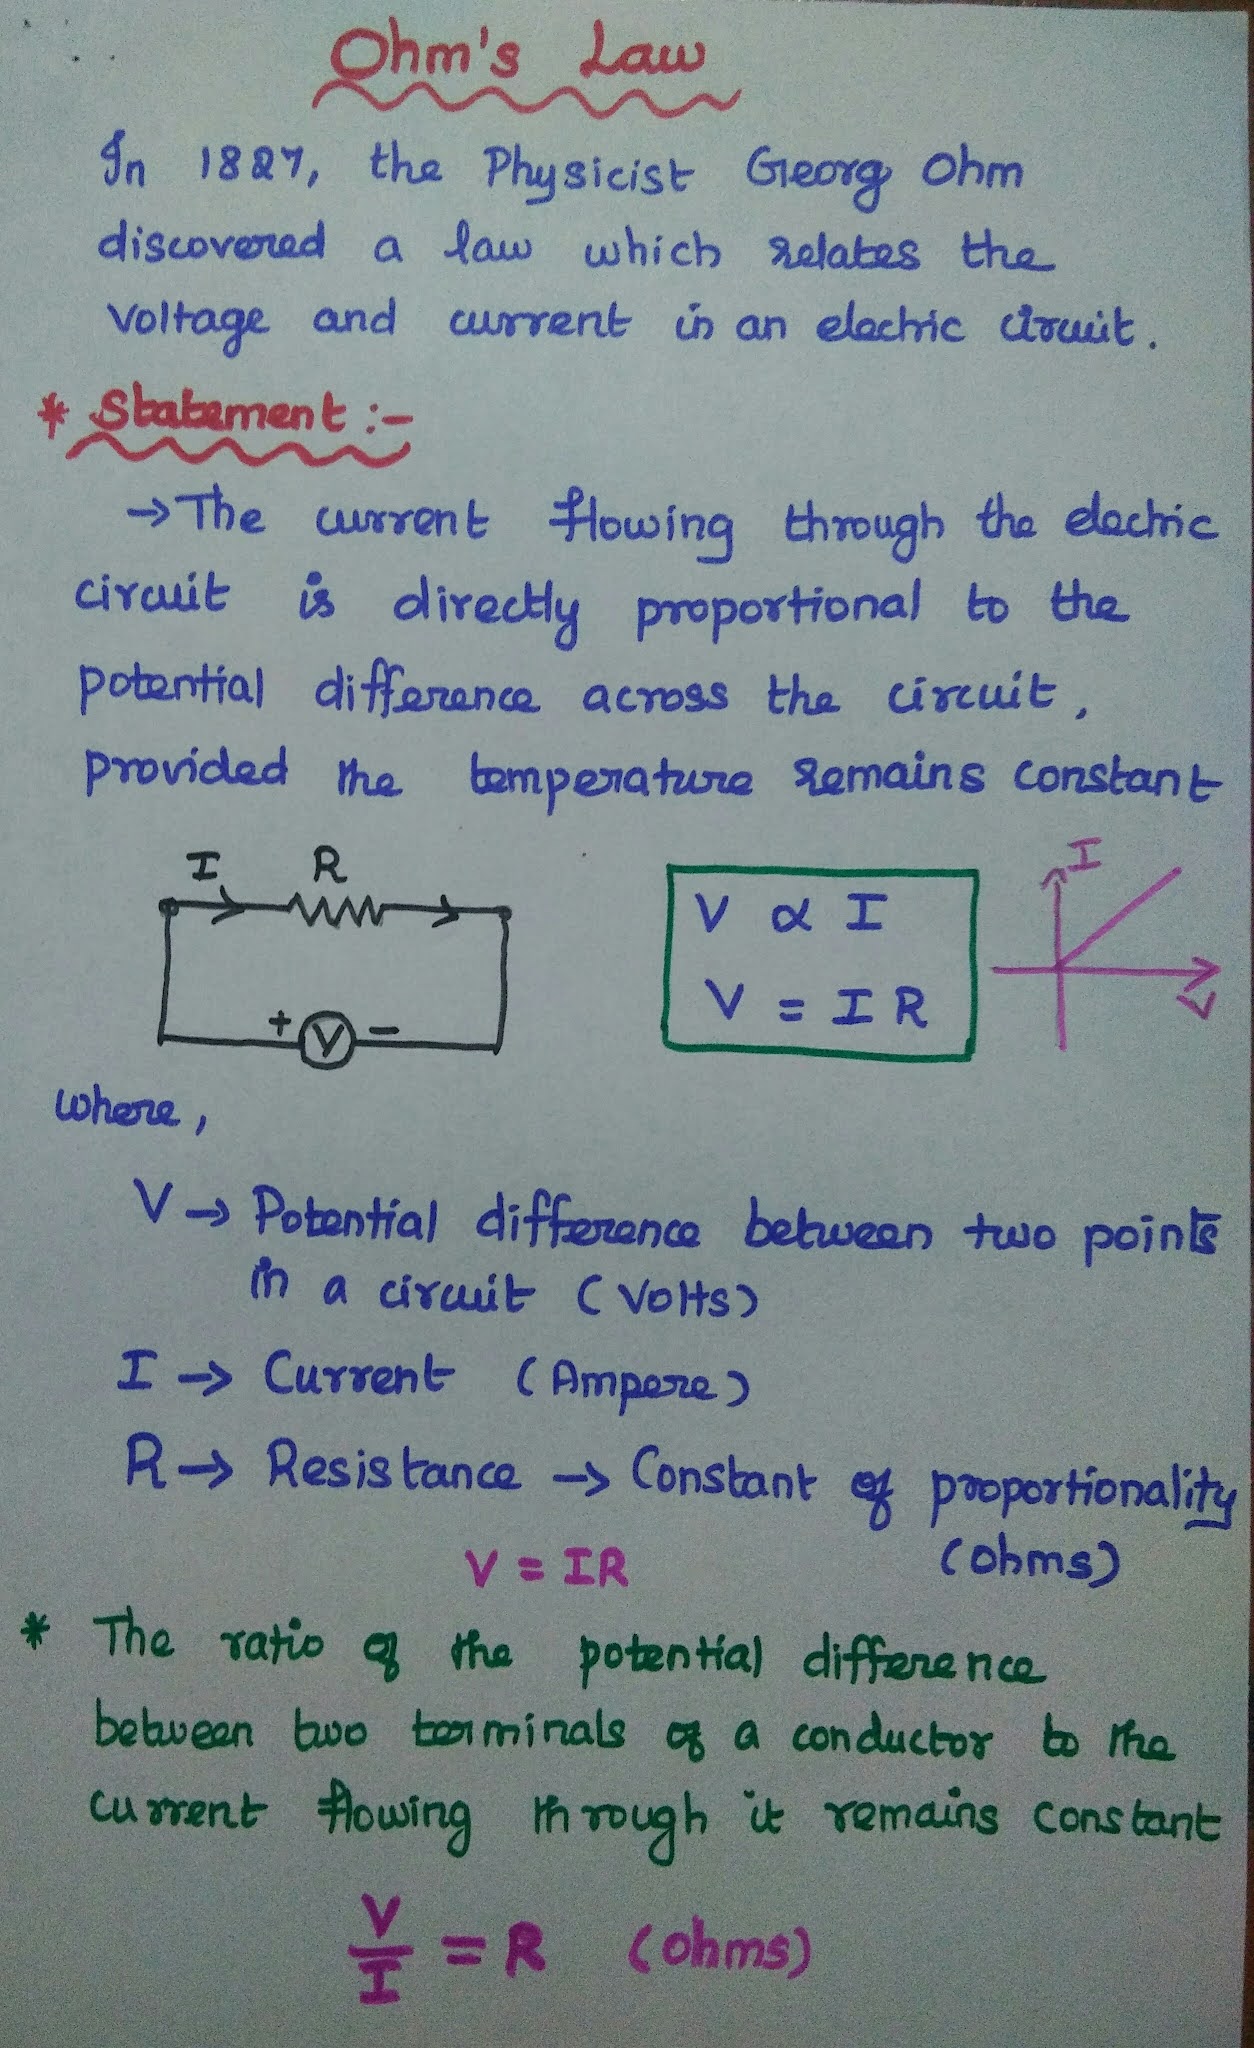 Ohm's Law
In 1827, the Physicist Georg Ohm
discovered a law which relates the
voltage and current in an electric circuit.
* Statement :-
→ The current flowing through the electric
circuit is directly proportional to the
potential difference across the circuit,
provided the temperature remains constant
I R
V ∝ I
V = I R
I
V
+ V -
where,
V → Potential difference between two points
in a circuit (Volts)
I → Current (Ampere)
R → Resistance → Constant of proportionality
(ohms)
V = IR
* The ratio of the potential difference
between two terminals of a conductor to the
current flowing through it remains constant
V/I = R (ohms)